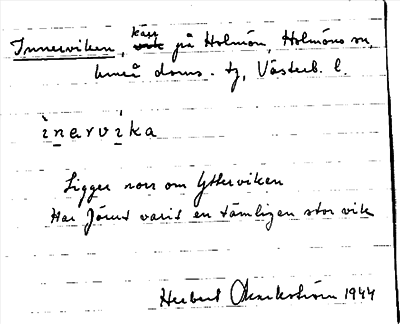 kärr
Innerviken, vik på Holmön, Holmöns sn,
Umeå doms. tg, Västerb. l.
inarvika
Ligger norr om Ytterviken
Har förut varit en tämligen stor vik
Herbert 1944